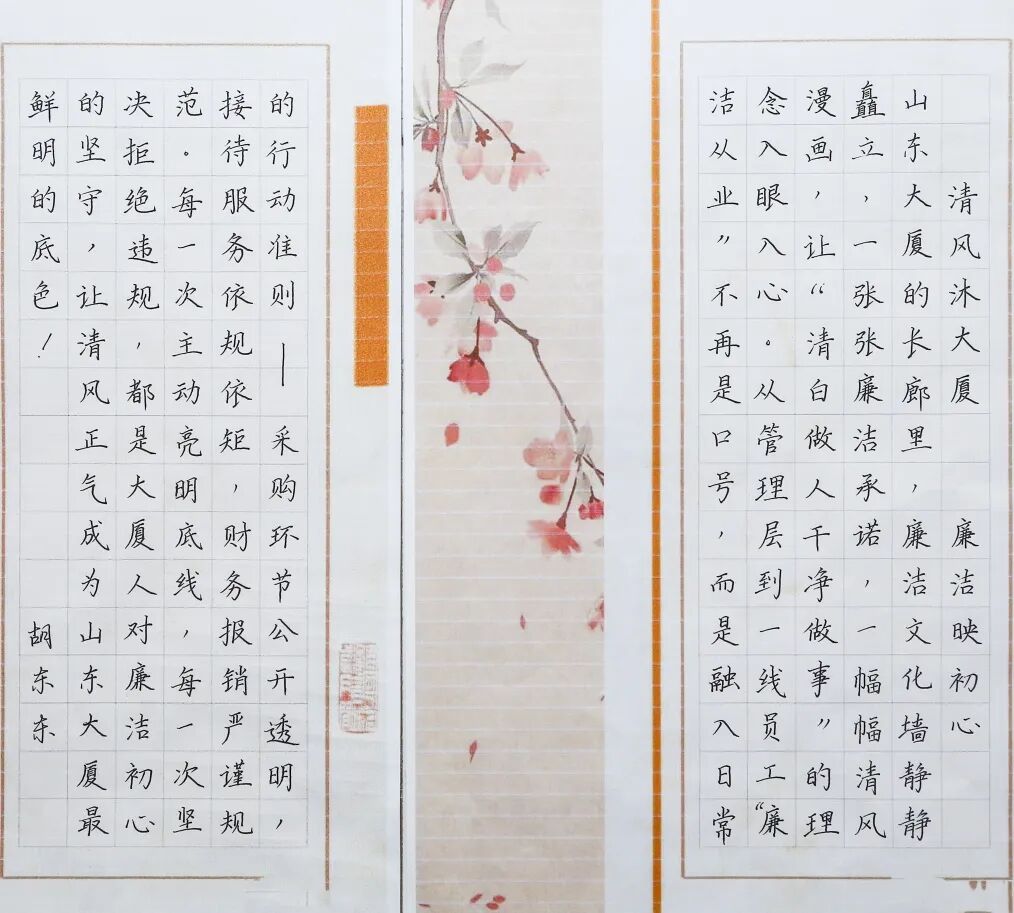 清风沐大厦 廉洁映初心
山东大厦的长廊里，廉洁文化墙静静
矗立，一张张廉洁承诺，一幅幅清风
漫画，让“清白做人干净做事”的理
念入眼入心。从管理层到一线员工“廉
洁从业”不再是口号，而是融入日常
的行动准则——采购环节公开透明，
接待服务依规依矩，财务报销严谨规
范。每一次主动亮明底线，每一次坚
决拒绝违规，都是大厦人对廉洁初心
的坚守，让清风正气成为山东大厦最
鲜明的底色！ 胡东东